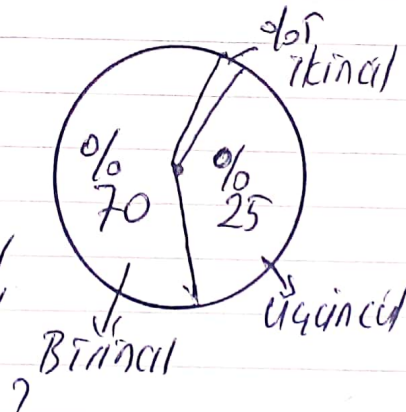 %5
ikincil
%
70
%
25
üçüncül
Birincil
?